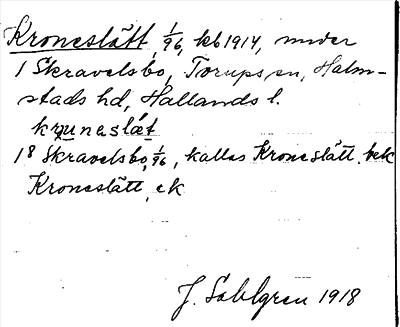 Kroneslätt, 1/96, kb 1914, under
1 Skravelsbo, Torups sn, Halm-
stads hd, Hallands l.
kruneslæt
18 Skravelsbo, 1/96, kallas Kroneslätt. bek
Kroneslätt, ek
J. Sahlgren 1918